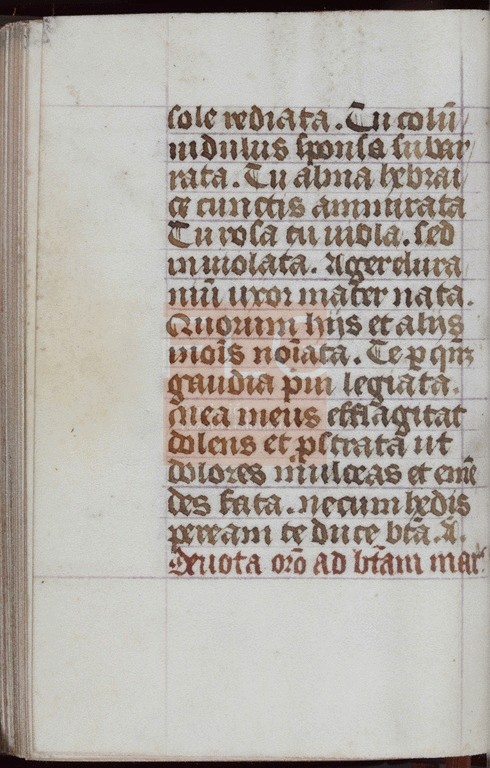 sole rediata. Tu colū
nidulus sponsa subar
rata. Tu alma hebrai
ce cunctis ammirata
Tu rosa cū uiola. sed
inuiolata. Ager elura
nū uxor mater nata.
Quorum hijs et alijs
mōis noīata. Te p
gaudia piui legiata.
Mea mens efflagitat
dolens et pstrata ut
dolores mulceas et emē
des fata. ne cum hedis
peream te duce btā. A.
Deuota orō ad btām mar